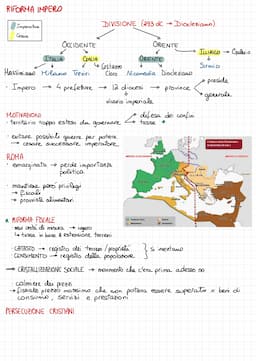 RIFORMA IMPERO
DIVISIONE (293 dC → Diocleziano)
Imperatore
Cesare
OCCIDENTE
ORIENTE
ITALIA
GALLIA
ORIENTE
ILLIRICO → Galerio
Costanzo
Cloro
Sirmio
Massimiano Milano Treviri
Nicomedia Diocleziano
• Impero → 4 prefetture → 12 diocesi → province
preside
generale
vicario imperiale
MOTIVAZIONI
• territorio troppo esteso da governare
difesa dei confini
tasse
• evitare possibili guerre per potere
→ cesare successore imperatore
ROMA
• emarginata → perde importanza
politica
• mantiene però privilegi
→ Fiscali
→ provviste alimentari
RIFORMA FISCALE
→ tassa in base a estensione terreni
CATASTO → registro dei terreni / proprietà
CENSIMENTO → registro della popolazione
→ CRISTALLIZZAZIONE SOCIALE → movimento che c'era prima adesso no
calmiere dei prezzi
→ fissato prezzo massimo che non poteva essere superato x beni di
consumo, servizi e prestazioni
PERSECUZIONE CRISTIANI